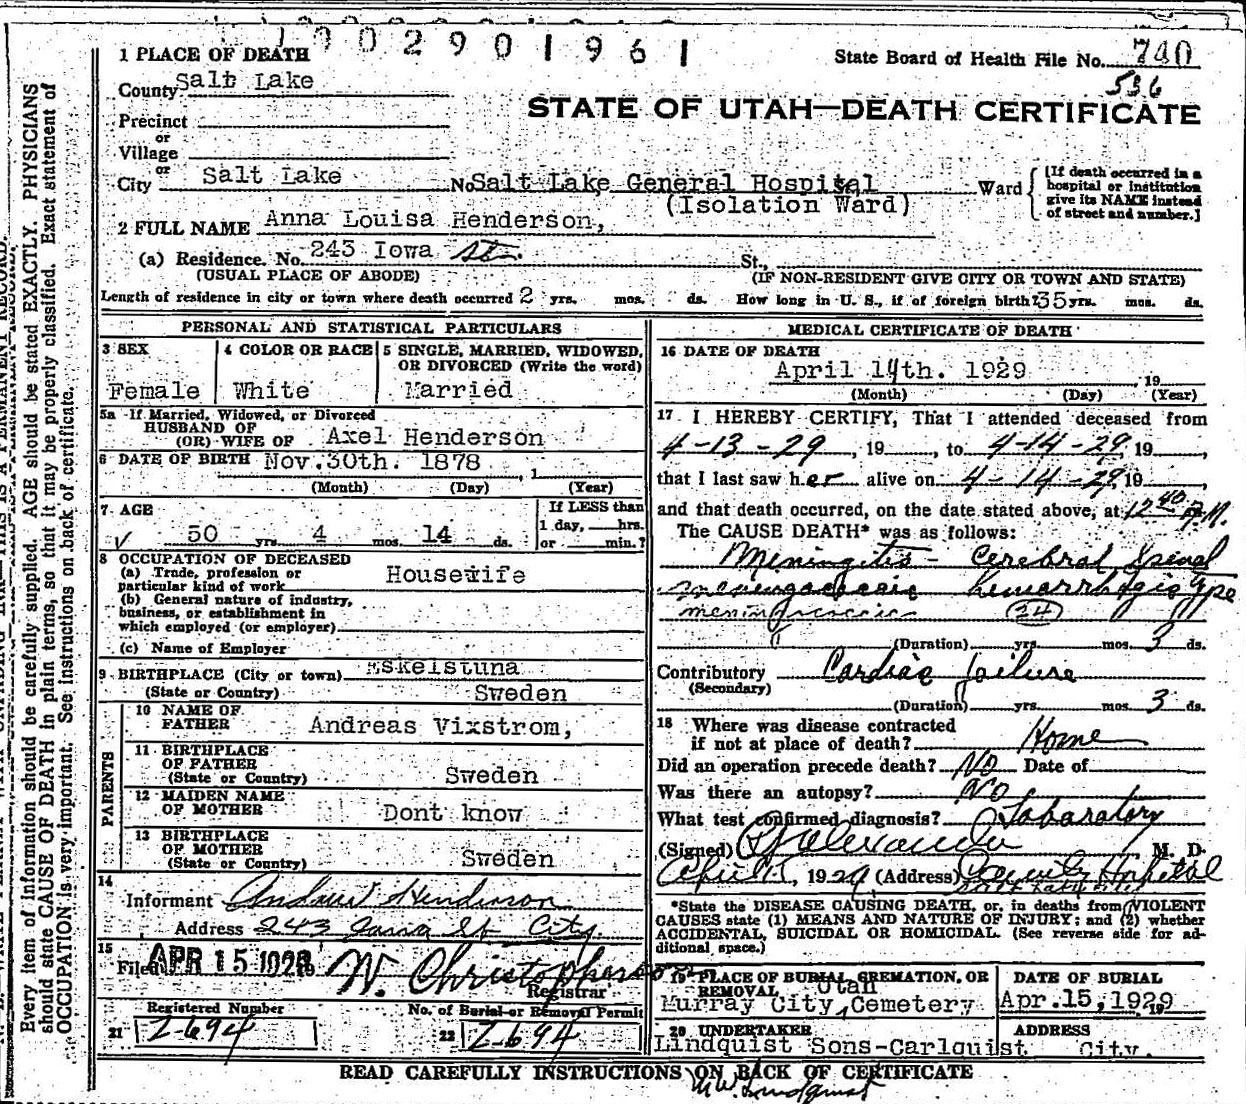 1002901961
1 PLACE OF DEATH
State Board of Health File No. 740
536
County Salt Lake
STATE OF UTAH—DEATH CERTIFICATE
Precinct
or
Village
or
City Salt Lake No. Salt Lake General Hospital Ward
(Isolation Ward)
[If death occurred in a
hospital or institution
give its NAME instead
of street and number.]
2 FULL NAME Anna Louisa Henderson,
(a) Residence. No. 243 Iowa St. St.,
(USUAL PLACE OF ABODE) (IF NON-RESIDENT GIVE CITY OR TOWN AND STATE)
Length of residence in city or town where death occurred 2 yrs. mos. ds. How long in U. S., if of foreign birth? 35 yrs. mos. ds.
PERSONAL AND STATISTICAL PARTICULARS
3 SEX
Female
4 COLOR OR RACE
White
5 SINGLE, MARRIED, WIDOWED,
OR DIVORCED (Write the word)
Married
5a If Married, Widowed, or Divorced
HUSBAND OF
(OR) WIFE OF Axel Henderson
6 DATE OF BIRTH Nov. 30th. 1878 , 1
(Month) (Day) (Year)
7 AGE
50 yrs. 4 mos. 14 ds.
If LESS than
1 day, hrs.
or min.?
8 OCCUPATION OF DECEASED
(a) Trade, profession or
particular kind of work Housewife
(b) General nature of industry,
business, or establishment in
which employed (or employer)
(c) Name of Employer
9 BIRTHPLACE (City or town) Eskelstuna
(State or Country) Sweden
PARENTS
10 NAME OF
FATHER Andreas Vixstrom,
11 BIRTHPLACE
OF FATHER
(State or Country) Sweden
12 MAIDEN NAME
OF MOTHER Dont know
13 BIRTHPLACE
OF MOTHER
(State or Country) Sweden
14
Informant Andrew Henderson
Address 243 Iowa St City
15
Filed APR 15 1929 19 W. Christopherson
Registrar
Registered Number No. of Burial or Removal Permit
21 2-694 22 2-694
MEDICAL CERTIFICATE OF DEATH
16 DATE OF DEATH
April 14th. 1929 , 19
(Month) (Day) (Year)
17 I HEREBY CERTIFY, That I attended deceased from
4-13-29, 19 , to 4-14-29, 19 ,
that I last saw her alive on 4-14-29, 19 ,
and that death occurred, on the date stated above, at 12 40
The CAUSE DEATH* was as follows:
Meningitis - Cerebral Spinal
hemorrhagic type
24
(Duration) yrs. mos. 3 ds.
Contributory Cardiac failure
(Secondary)
(Duration) yrs. mos. 3 ds.
18 Where was disease contracted
if not at place of death? Home
Did an operation precede death? No Date of
Was there an autopsy? No
What test confirmed diagnosis? Labaratory
(Signed) M. D.
April 15, 1929 (Address) County Hospital
*State the DISEASE CAUSING DEATH, or, in deaths from VIOLENT
CAUSES state (1) MEANS AND NATURE OF INJURY; and (2) whether
ACCIDENTAL, SUICIDAL OR HOMICIDAL. (See reverse side for ad-
ditional space.)
19 PLACE OF BURIAL, CREMATION, OR
REMOVAL Utah
Murray City, Cemetery
DATE OF BURIAL
Apr.15,1929 19
20 UNDERTAKER
Lindquist Sons-Carlquist
ADDRESS
City.
READ CAREFULLY INSTRUCTIONS ON BACK OF CERTIFICATE
M.W. Lindquist
Every item of information should be carefully supplied. AGE should be stated EXACTLY. PHYSICIANS
should state CAUSE OF DEATH in plain terms, so that it may be properly classified. Exact statement of
OCCUPATION is very important. See instructions on back of certificate.